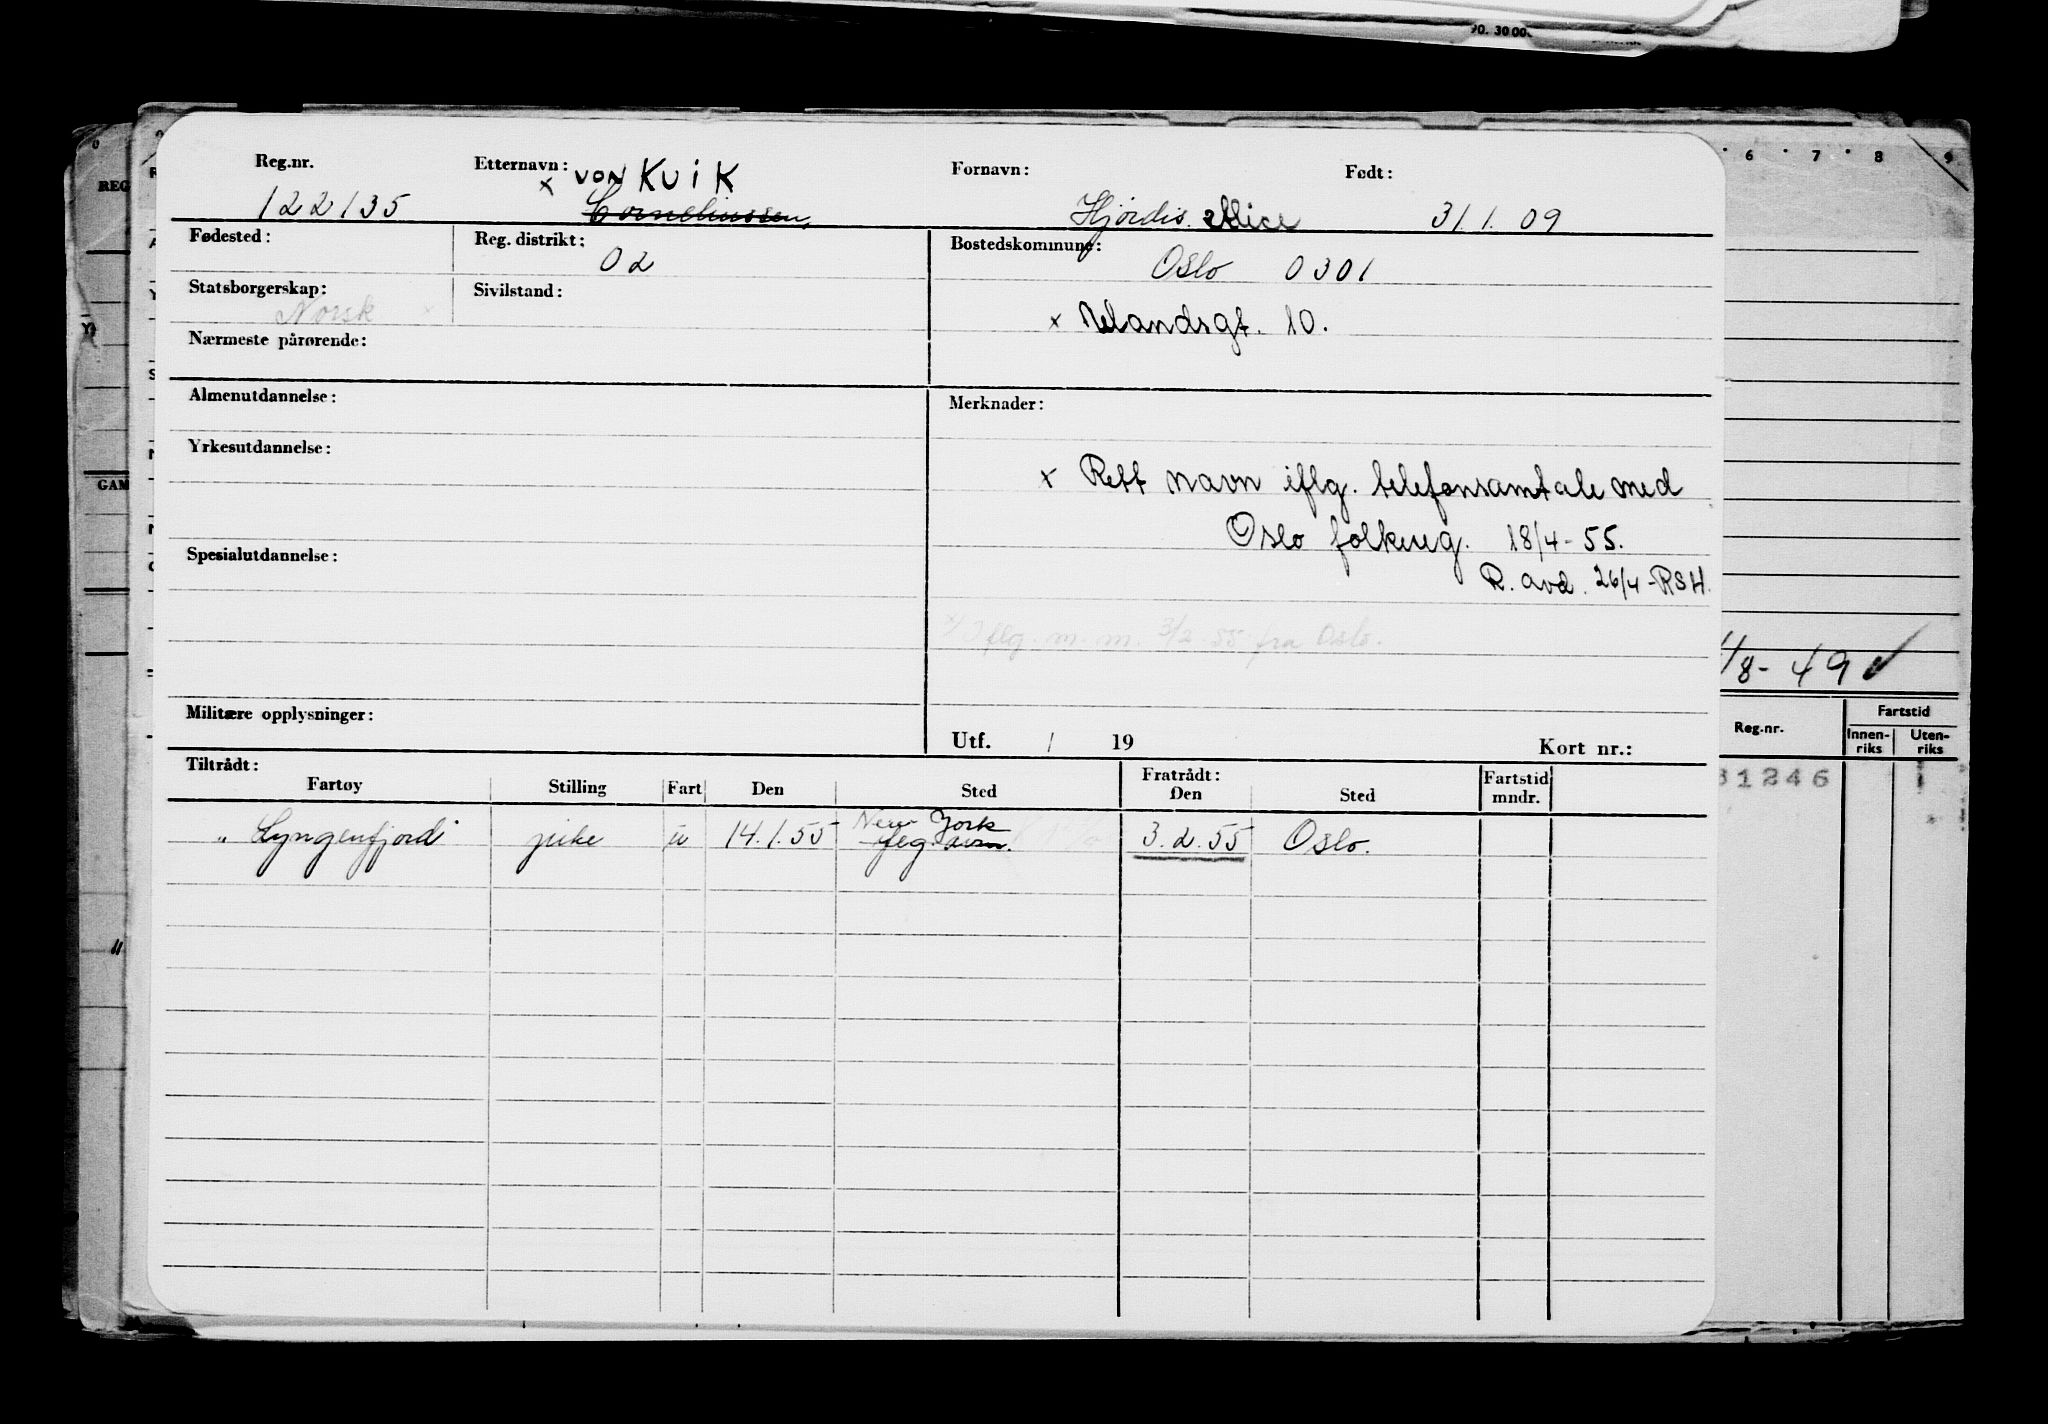 90. 30 000
Reg.nr. Etternavn: Fornavn: Født:
x von Kvik
122135 Corneliussen, Hjørdis Alice 31.1.09
Fødested: Reg. distrikt: 02 Bostedskommune: Oslo 0301
Statsborgerskap: Norsk x Sivilstand:
x Uelandsgt. 10.
Nærmeste pårørende:
Almenutdannelse: Merknader:
Yrkesutdannelse:
x Rett navn iflg. telefonsamtale med
Oslo folkereg. 18/4-55.
Spesialutdannelse:
R. avd. 26/4-RSH.
x) Iflg. m. m. 3/2-55 fra Oslo.
Militære opplysninger:
Utf. / 19 Kort nr.:
Tiltrådt: Fratrådt:
Fartøy Stilling Fart Den Sted Den Sted Fartstid mndr.
New York
" Lyngenfjord" pike u 14.1.55 3.2.55 Oslo.
6 7 8 9
REG
GAM
/8-49
Reg.nr. Fartstid
Innen-riks Uten-riks
31246